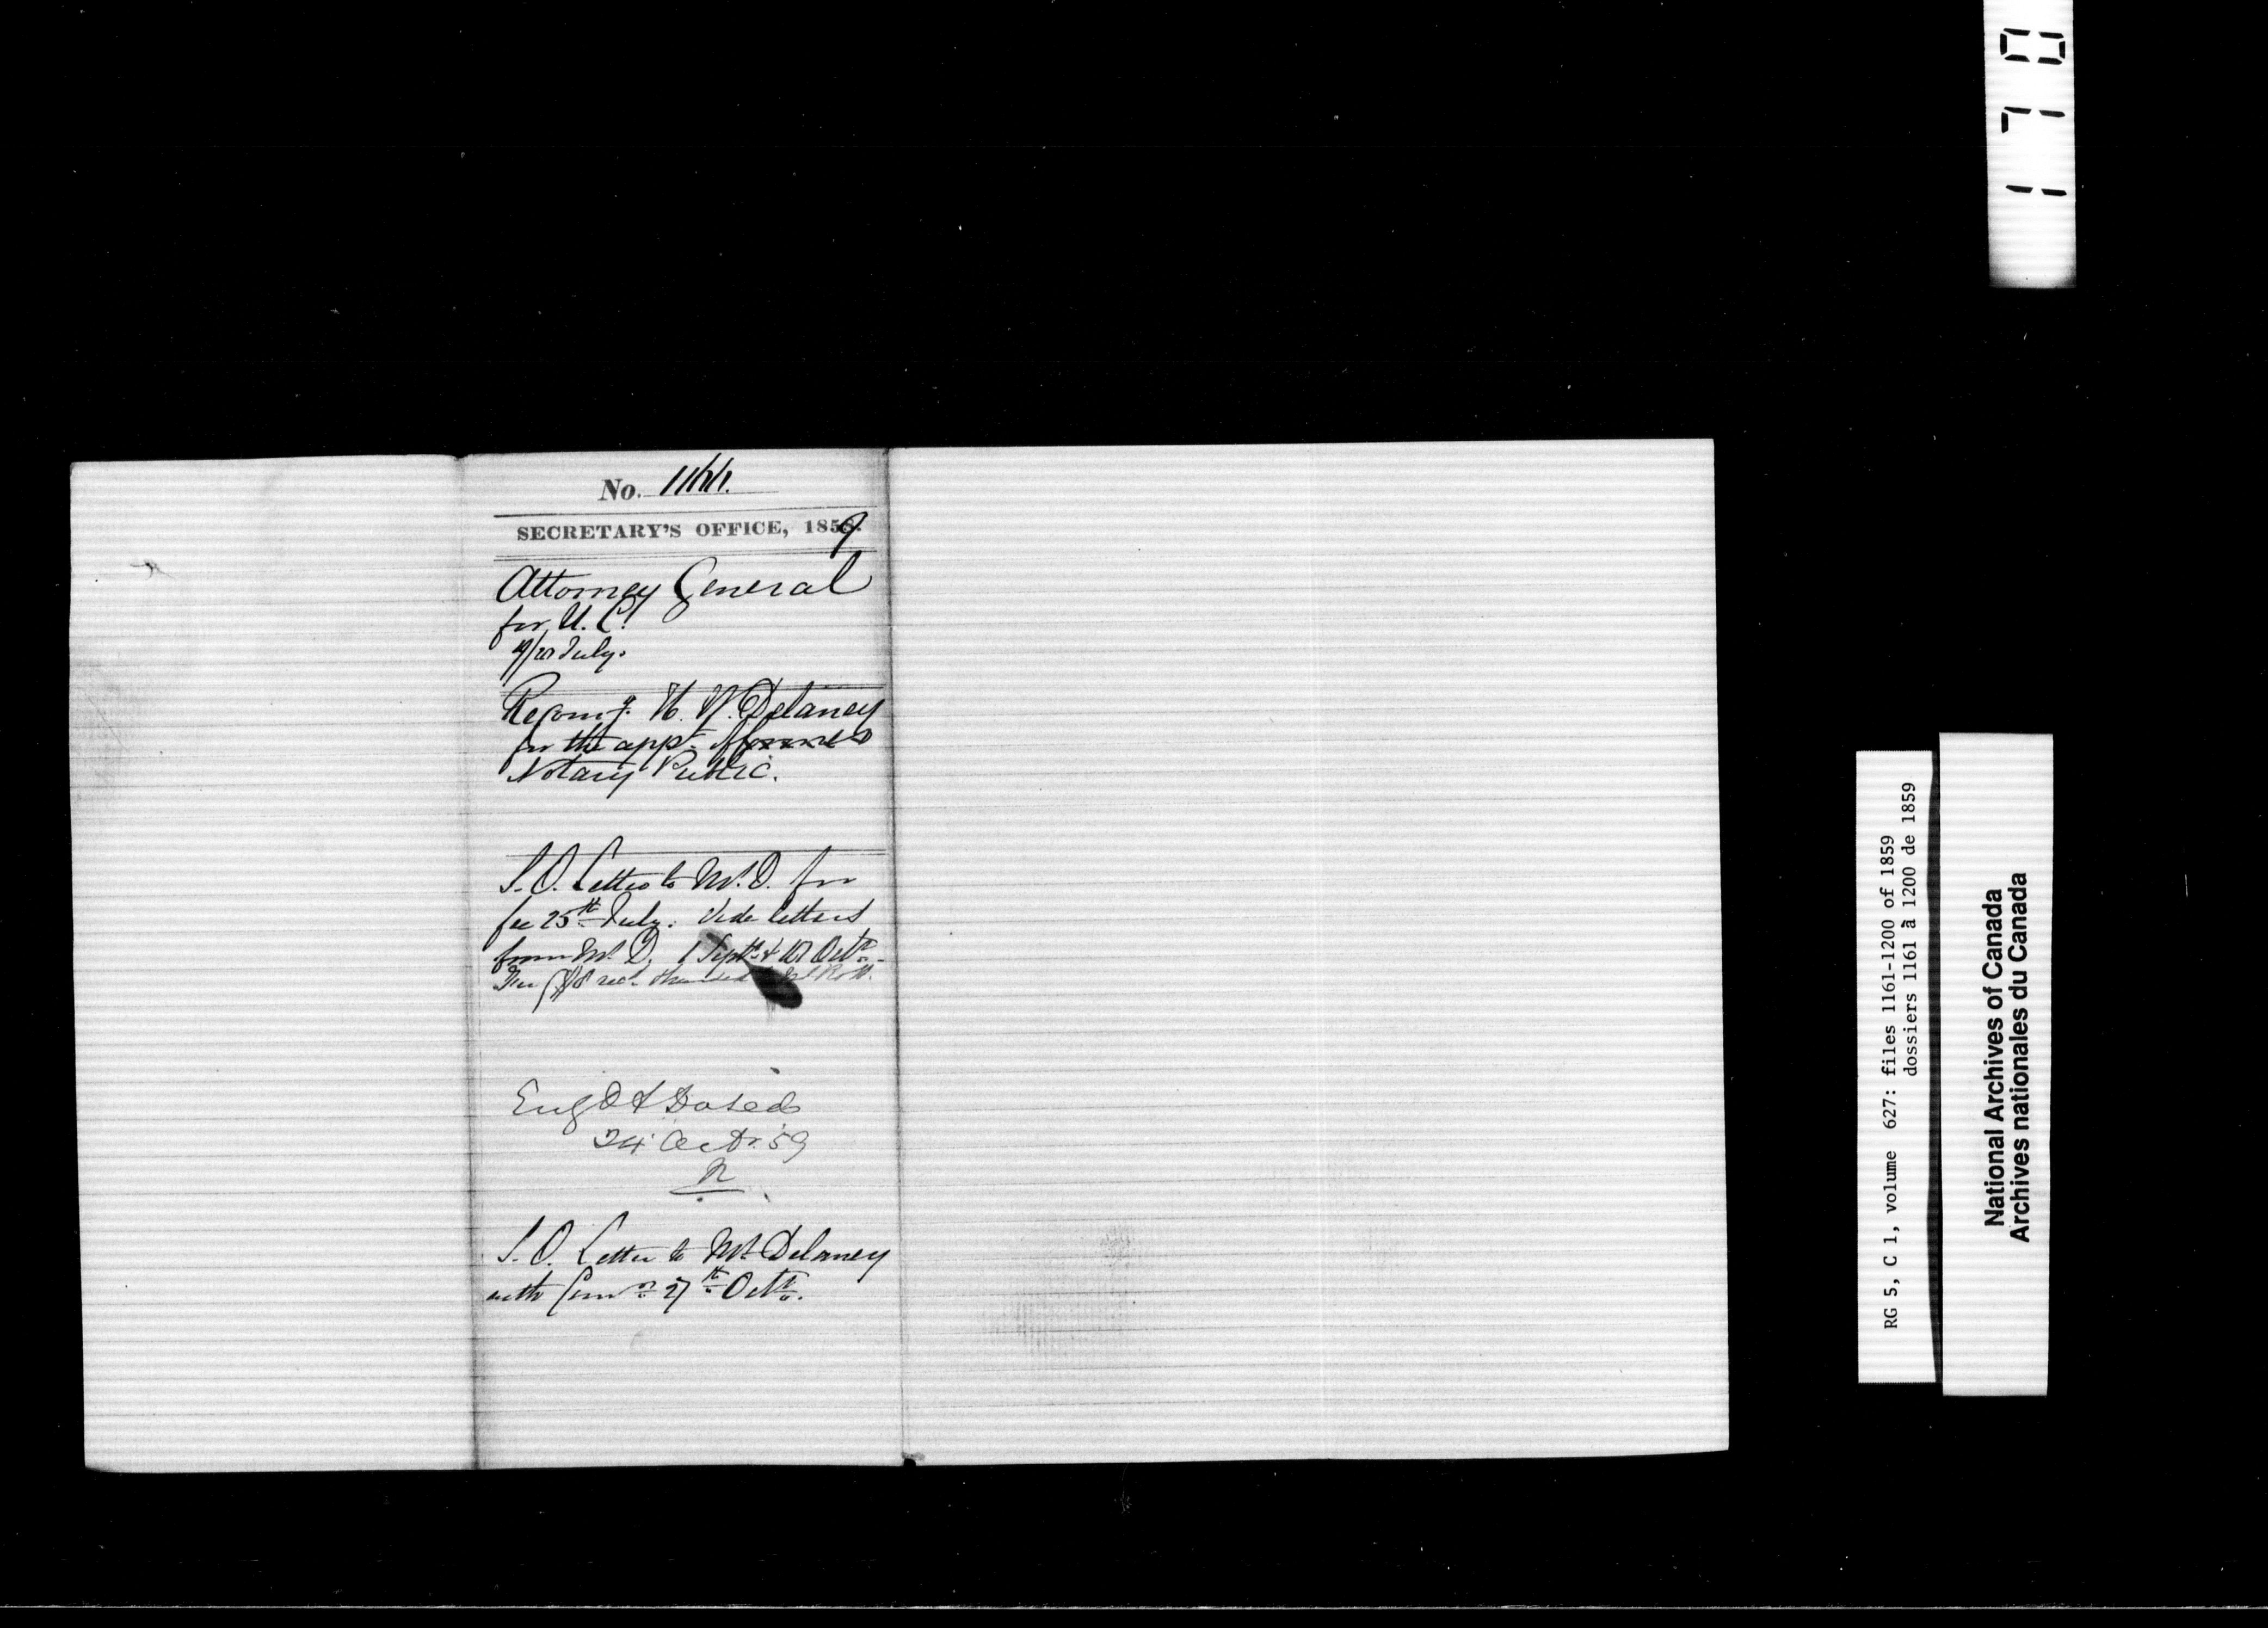 No. 1166.
SECRETARY'S OFFICE, 1859.
Attorney General
for U. C.
19/20 July.
Recomg. H. W. Delaney
for the appt. of
Notary Public.
S. O. Letter to Mr. D. for
fee 25th July. Vide letters
from Mr. D. 1 Septr. & 10 Octr.
Fee $8 recd. handed
Engd & Dated
24 Octr. 59
S. O. Letter to Mr. Delaney
with Comn. 27th Octr.
170
RG 5, C 1, volume 627: files 1161-1200 of 1859
dossiers 1161 à 1200 de 1859
National Archives of Canada
Archives nationales du Canada